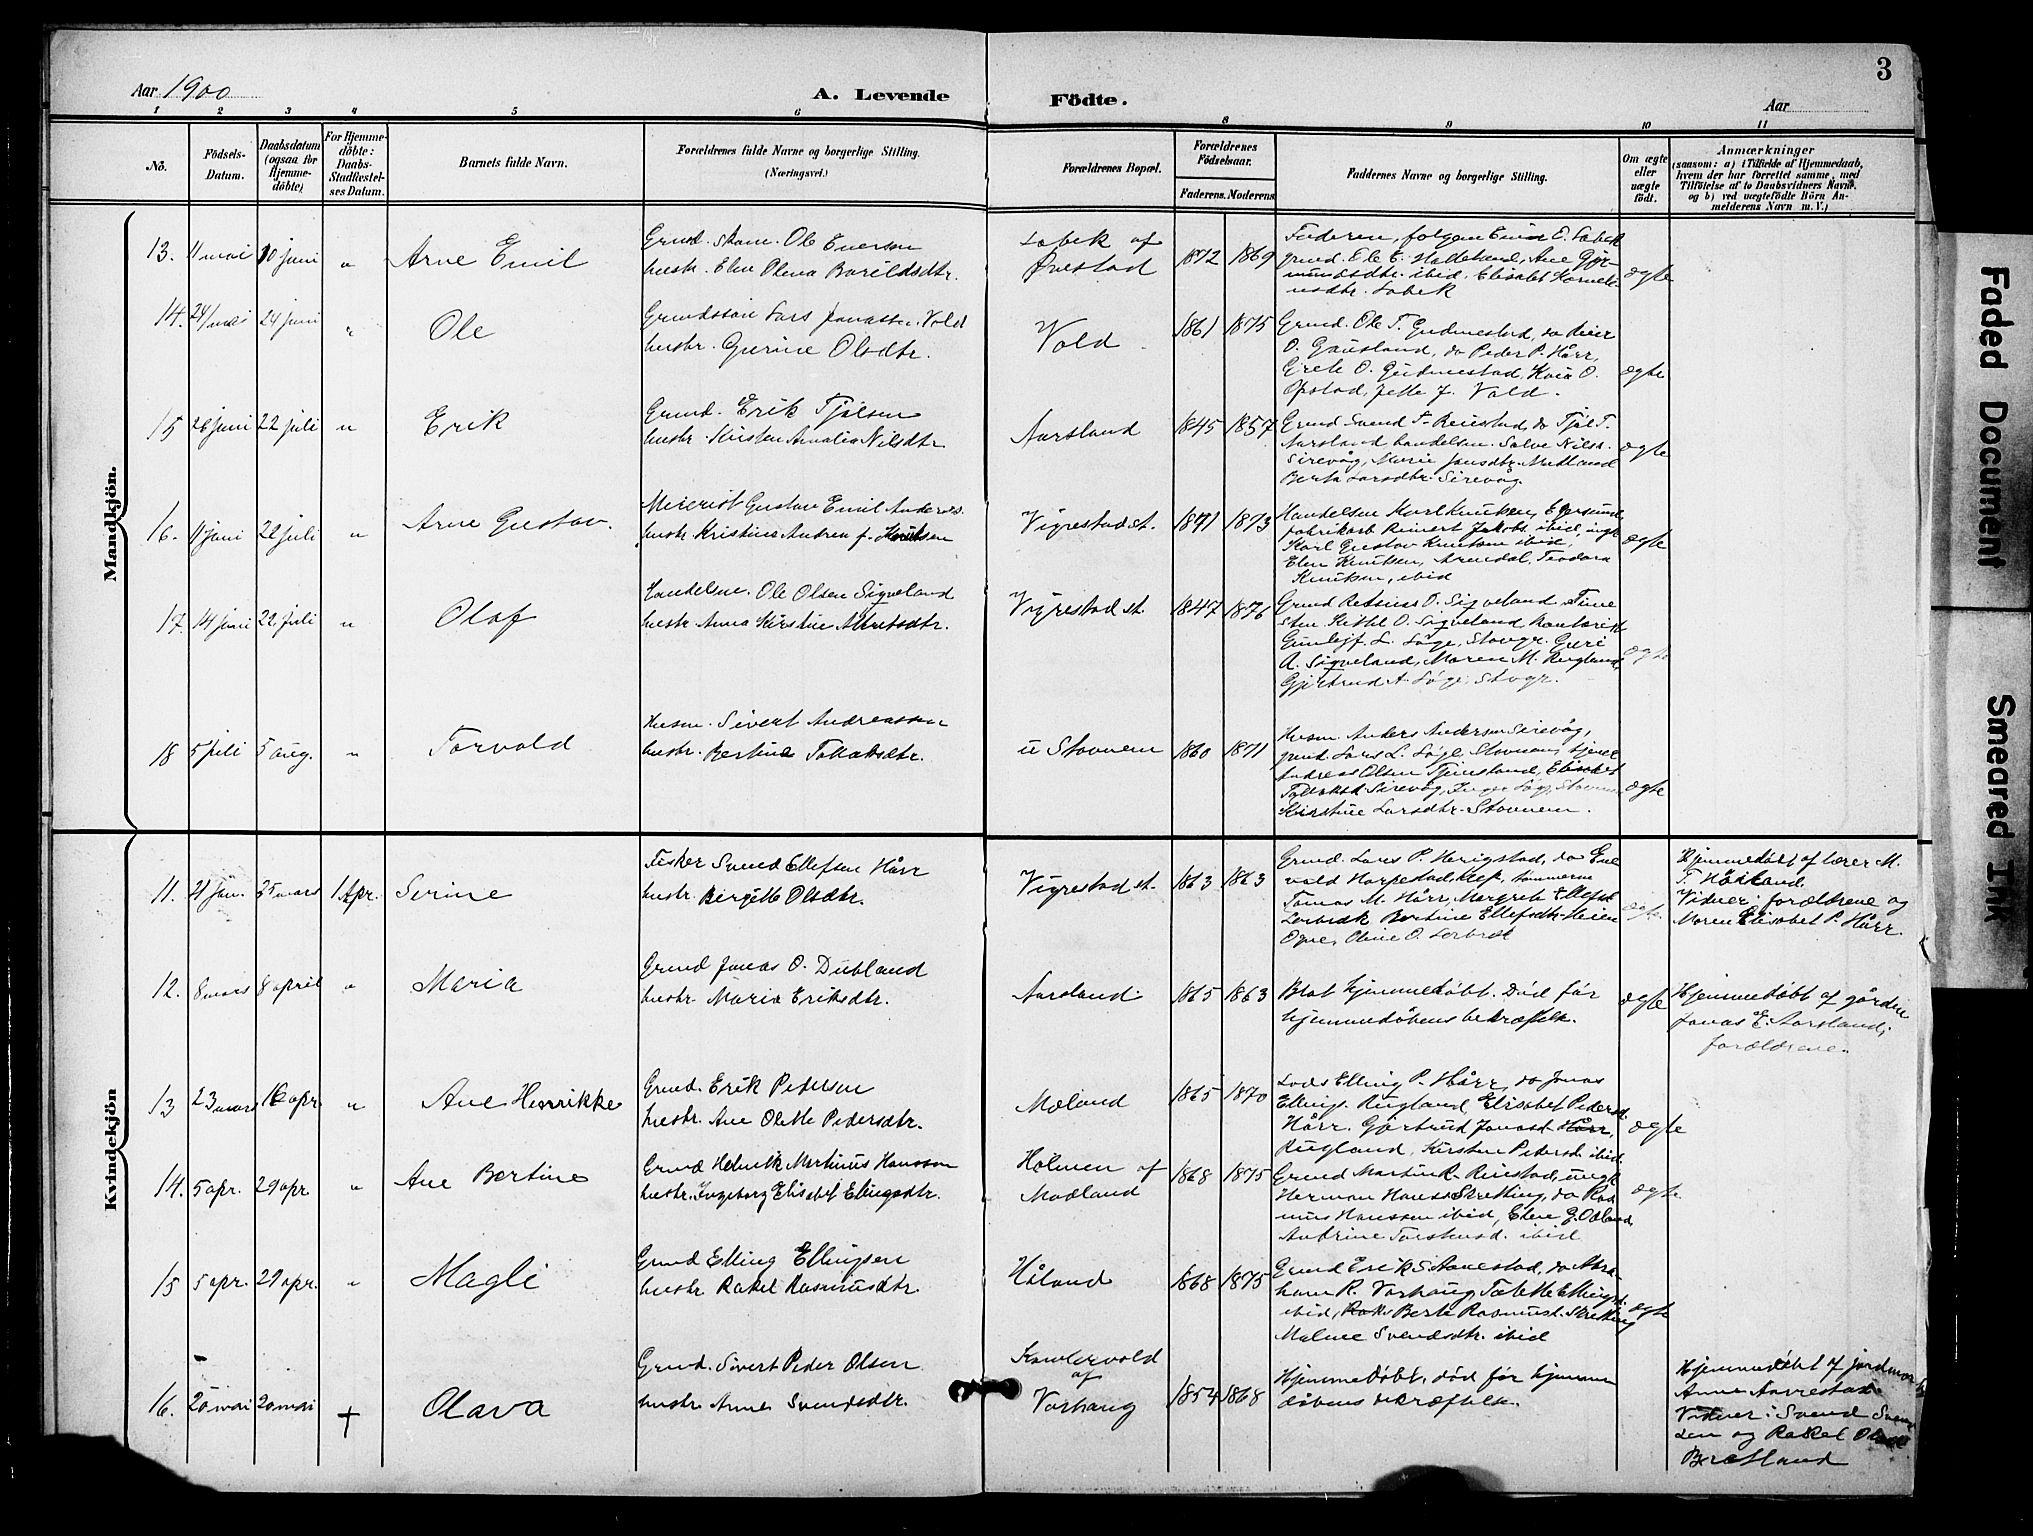 3
Aar 1900
A. Levende
Födte.
Aar
1 2 3 4 5 6 8 9 10 11
Nö.
Födsels-Datum.
Daabsdatum (ogsaa for Hjemme-döbte)
For Hjemme-döbte: Daabs-Stadfæstel-ses Datum.
Barnets fulde Navn.
Forældrenes fulde Navne og borgerlige Stilling.
(Næringsvei.)
Forældrenes Bopæl.
Forældrenes Födselsaar.
Faderens. Moderens.
Faddernes Navne og borgerlige Stilling.
Om ægte eller uægte födt.
Anmærkninger
(saasom: a) i Tilfælde af Hjemmedaab, hvem der har forrettet samme, med Tilföielse af to Daabsvidners Navne, og b) ved uægtefödte Börn An-melderens Navn m. V.)
Mandkjön.
13. 11 mai 10 juni " Arne Emil
Ole Enersen
hustr. Elen Olena Barildsdtr.
Lobek af
Ørestad
1872 1869
Faderen,
Elisabet
Lobek
ægte
14. 24/mai 24 juni " Ole
Lars Jonassen Vold
hustr. Gurine Olsdtr.
Vold
1861 1875
Grmd. Ole T. Gudmestad, do Reier
O. Gausland, do Peder P. Hårr,
Grete O. Gudmestad, O.
Opstad, Jette J. Vold.
ægte
15 26 juni 22 juli " Erik
Grmd. Erik Tjølsen
hustr. Kirsten Amalia Nilsdtr
Aarsland
1845 1857
Grmd. Svend T. Reiestad, do Tjøl T.
Aarsland, handelsm. Salve Nilsen
Sirevåg, Marie Jonsdtr. Madland
Berta Larsdtr. Sirevåg.
ægte
16. 11 juni 22 juli " Arne Gustav.
Meierist Gustav Emil Anders.
hustr. Kristine Andrea f. Knutsen
Vigrestad st.
1871 1873
Handelsm Karl Knutsen, Egersund,
fabrikarb. Reinert Jakobs. ibid, ungk
Karl Gustav Knutsen ibid,
Elen Knutsen, Arendal, Teodora
Knutsen, ibid
ægte
17. 14 juni 22 juli " Olaf
Handelsm. Ole Olsen Sigveland
hustr. Anna Kirstine
Vigrestad st.
1847 1876
Grmd Rasmus O. Sigveland,
Kittil O. Sigveland,
L. Løge, Stavgr. Guri
A. Sigveland, Maren M. Rugland,
Gjertrud A. Løge, Stavgr.
ægte
18 5 juli 5 aug. " Torvald
Husm. Sivert Andreassen
hustr. Bertine Tollaksdtr.
u Stavnem
1860 1871
Husm Anders Andersen Sirevåg,
grmd. Lars L. Løge, Stavnem,
Andreas Olsen Tjemsland, Elisabet
Tollaksd Sirevåg, Inger Løge, Stavnem
Kirstine Larsdtr. Stavnem.
ægte
Kvindekjön
11. 21 jan. 25 mars 1 Apr. Serine
Fisker Svend Ellefsen Hårr
hustr. Bergitte Olsdtr.
Vigrestad st.
1863 1863
Grmd. Lars P. Herigstad, do Ene
vald Harpestad, Klep,
Tomas M. Hårr, Margrete Ellefsd
Lerbrek, Bertine Ellefsdtr.
Ogne, Oline O. Lerbrek
ægte.
Hjemmedøbt af lærer M.
T. Høiland.
Vidner: forældrene og
Maren Elisabet P. Hårr.
12. 8 mars 8 april " Maria
Grmd Jonas O. Dubland
hustr. Maria Eriksdtr.
Aarsland.
1865 1863
Blot hjemmedøbt. Død før
hjemmedåbens bekræftelse.
ægte
Hjemmedøbt af gårdm
Jonas E. Aarsland,
forældrene.
13 23 mars 16 apr " Ane Henrikke
Grmd. Erik Pedersen
hustr. Ane Olette Pedersdtr.
Mæland
1865 1870
Lods Elling P. Hårr, do Jonas
Ellings. Rugland, Elisabet Pedersd.
Hårr. Gjertrud Jonasd. Hårr,
Rugland, Kirsten Pedersd. ibid.
ægte
14. 5 apr. 29 apr " Ane Bertine
Grmd Henrik Martinus Hanssen
hustr. Ingeborg Elisabet Ellingsdtr.
Holmen af
Madland
1868 1875
Grmd Martin R. Reiestad, ungk
Herman Hanss. Skretting, do Ras
mus Hanssen ibid, Elene G. Odland,
Andrine ibid
ægte
15 5 apr. 29 apr. " Magli
Grmd Elling Ellingsen
hustr. Rakel Rasmusdtr.
Håland
1868 1875
Grmd Erik S. Aanestad, do Abra
ham R. Varhaug, Ellingsd.
ibid, Berte Rasmusd. Skretting
Malene Svendsdtr. ibid
ægte
16. 20 mai 20 mai + Olava
Grmd. Sivert Peder Olsen
hustr. Anne Svendsdtr.
af
Varhaug
1854 1868
Hjemmedøbt, død før hjemme
dåbens bekræftelse.
Hjemmedøbt af jordmor
Anne Aarrestad
Vidner: Svend Svend
sen og Rakel
Bratland
Faded Document
Smeared Ink